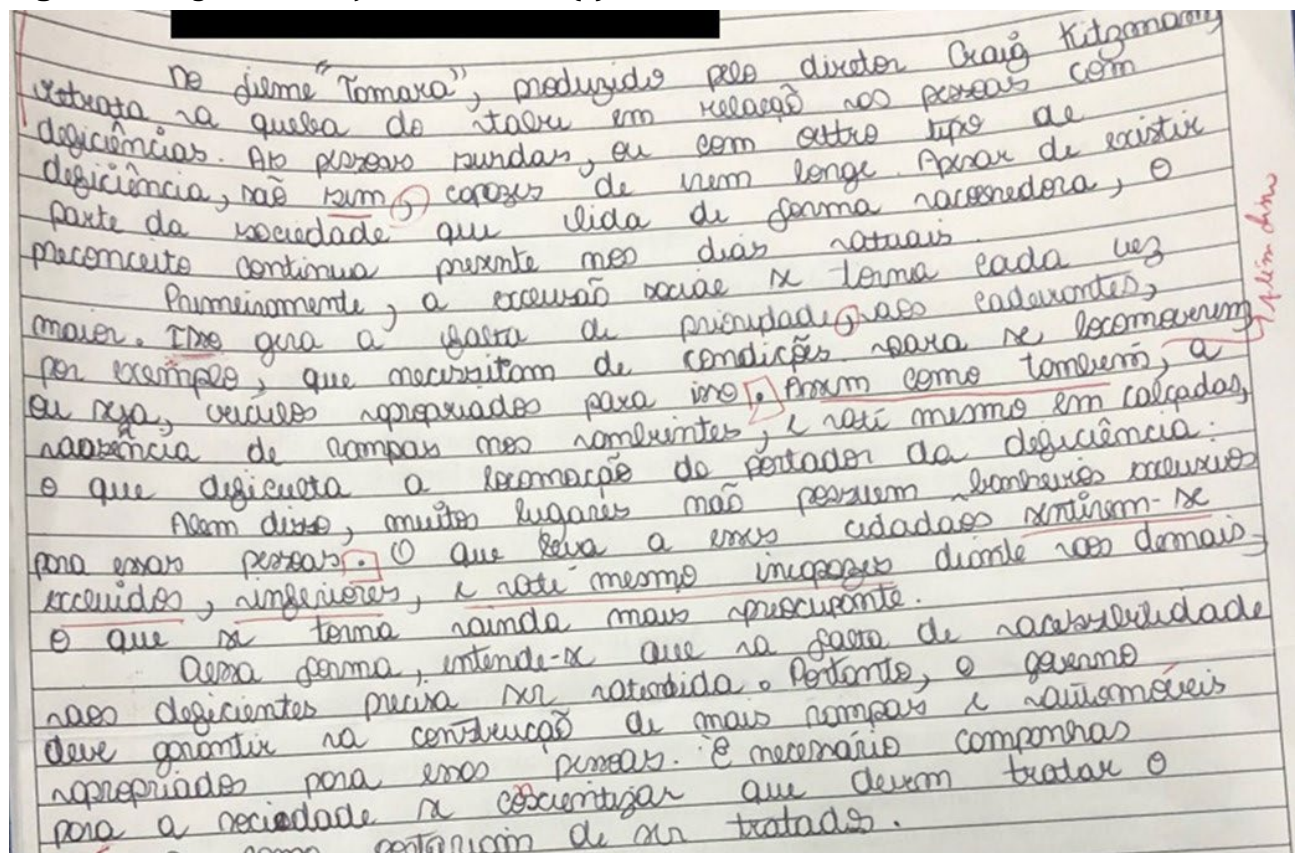 No filme "Tomara", produzido pelo diretor Craig Kitzmann,
retrata a queba do tabu em relação aos pessoas com
deficiências. As pessoas surdas, ou com outro tipo de
deficiência, são sim, capazes de irem longe. Apesar de existir
parte da sociedade que lida de forma acolhedora, o
preconceito continua presente nos dias atuais.
Primeiramente, a exclusão social se torna cada vez
maior. Isso gera a falta de prioridade, aos cadeirantes,
por exemplo, que necessitam de condições para se locomoverem,
ou seja, veículos apropriados para isso. Assim como também, a
ausência de rampas nos ambientes, e até mesmo em calçadas,
o que dificulta a locomoção do portador da deficiência.
Além disso, muitos lugares não possuem banheiros exclusivos
para essas pessoas. O que leva a esses cidadãos sentirem-se
excluidos, inferiores, e até mesmo incapazes diante aos demais,
o que se torna ainda mais preocupante.
Dessa forma, entende-se que a falta de acessibilidade
aos deficientes precisa ser atendida. Portanto, o governo
deve garantir a construção de mais rampas e automóveis
apropriados para essas pessoas. É necessário companhas
para a sociedade se coscientizar que devem tratar o
como gostariam de ser tratados.
Além disso